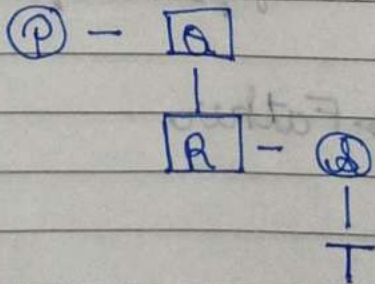 P - Q
R - S
T